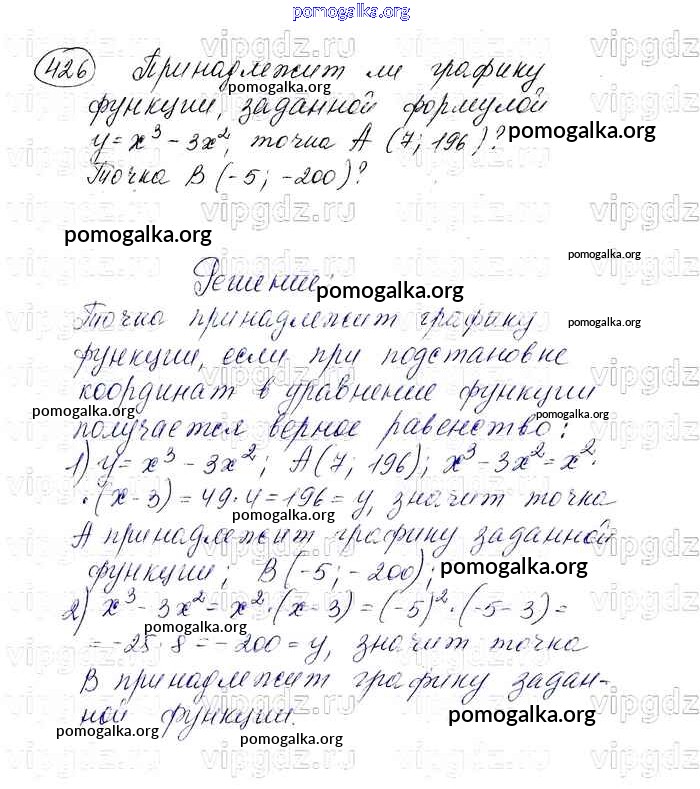 pomogalka.org
426 Принадлежит ли графику
pomogalka.org
функции, заданной формулой
y = x³ - 3x², точка А (7; 196)?
pomogalka.org
Точка В (-5; -200)?
pomogalka.org
pomogalka.org
Решение:
pomogalka.org
Точка принадлежит графику
pomogalka.org
функции, если при подстановке
координат в уравнение функции
pomogalka.org
pomogalka.org
получается верное равенство:
1) y = x³ - 3x²; А (7; 196); x³ - 3x² = x² ·
· (x - 3) = 49 · 4 = 196 = y, значит точка
pomogalka.org
А принадлежит графику заданной
функции; В (-5; -200);
pomogalka.org
2) x³ - 3x² = x² · (x - 3) = (-5)² · (-5 - 3) =
pomogalka.org
= -25 · 8 = -200 = y, значит точка
В принадлежит графику задан-
ной функции.
pomogalka.org
pomogalka.org
pomogalka.org
vipgdz.ru